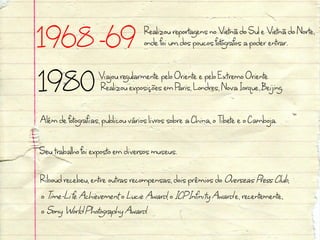 1968-69 Realizou reportagens no Vietnã do Sul e Vietnã do Norte,
onde foi um dos poucos fotógrafos a poder entrar.
1980 Viajou regularmente pelo Oriente e pelo Extremo Oriente.
Realizou exposições em Paris, Londres, Nova Iorque, Beijing.
Além de fotografias, publicou vários livros sobre a China, o Tibete e o Camboja.
Seu trabalho foi exposto em diversos museus.
Riboud recebeu, entre outras recompensas, dois prêmios do Overseas Press Club,
o Time-Life Achievement o Lucie Award, o ICP Infinity Award e, recentemente,
o Sony World Photography Award.